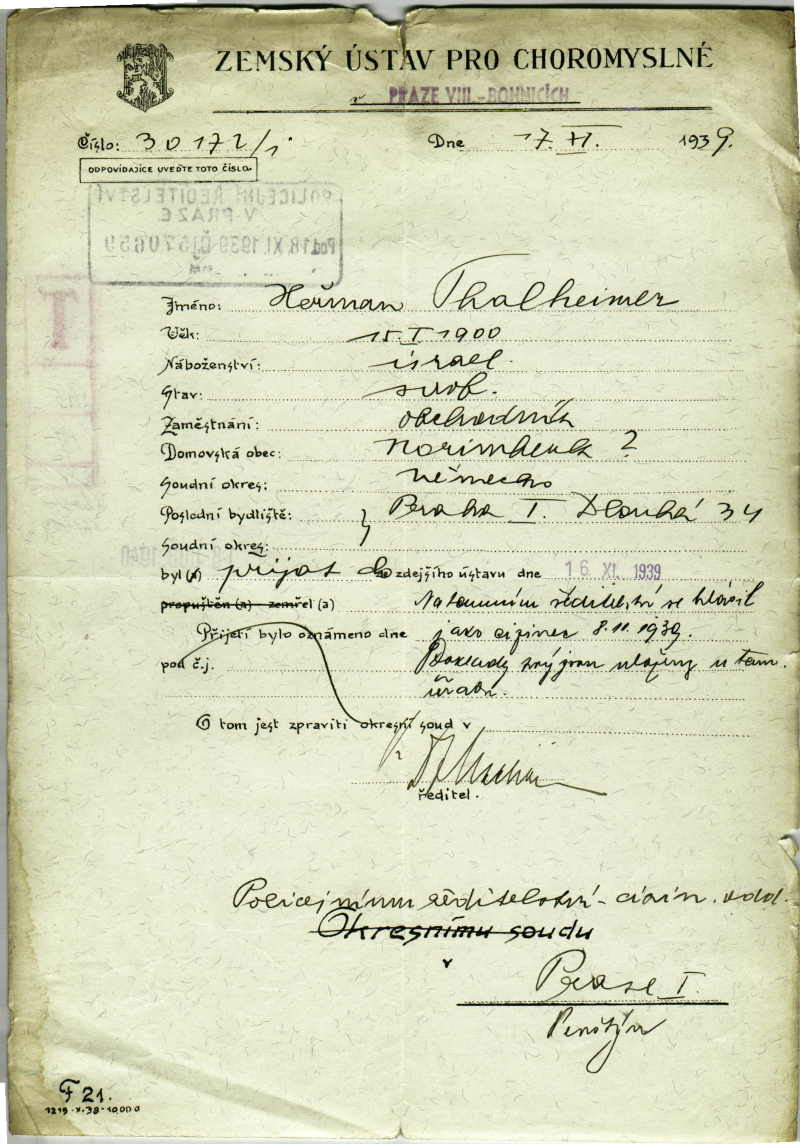 ZEMSKÝ ÚSTAV PRO CHOROMYSLNÉ
v PRAZE VIII.-BOHNICÍCH
Číslo: 30172/1 Dne 17. XI. 1939.
ODPOVÍDAJÍCE UVEĎTE TOTO ČÍSLO.
POLICEJNÍ ŘEDITELSTVÍ
V PRAZE
Pod. 18. XI. 1939
Jméno: Heřman Thalheimer
Věk: 15. I 1900
Náboženství: israel.
Stav: svob.
Zaměstnání: obchodník
Domovská obec: Norimberk ?
Soudní okres: Německo
Poslední bydliště: Praha I. Dlouhá 34
Soudní okres:
byl(a) přijat do zdejšího ústavu dne 16. XI. 1939
propuštěn (a) - zemřel (a) Na tamním ředitelství se hlásil
Přijetí bylo oznámeno dne jako cizinec 8. 11. 1939.
pod č.j. Doklady jsou uloženy u tam.
úřadu.
O tom jest zpraviti okresní soud v
ředitel.
Policejnímu ředitelství - odd.
Okresnímu soudu
v
Praze I.
F 21.
1219-X-38-10.000